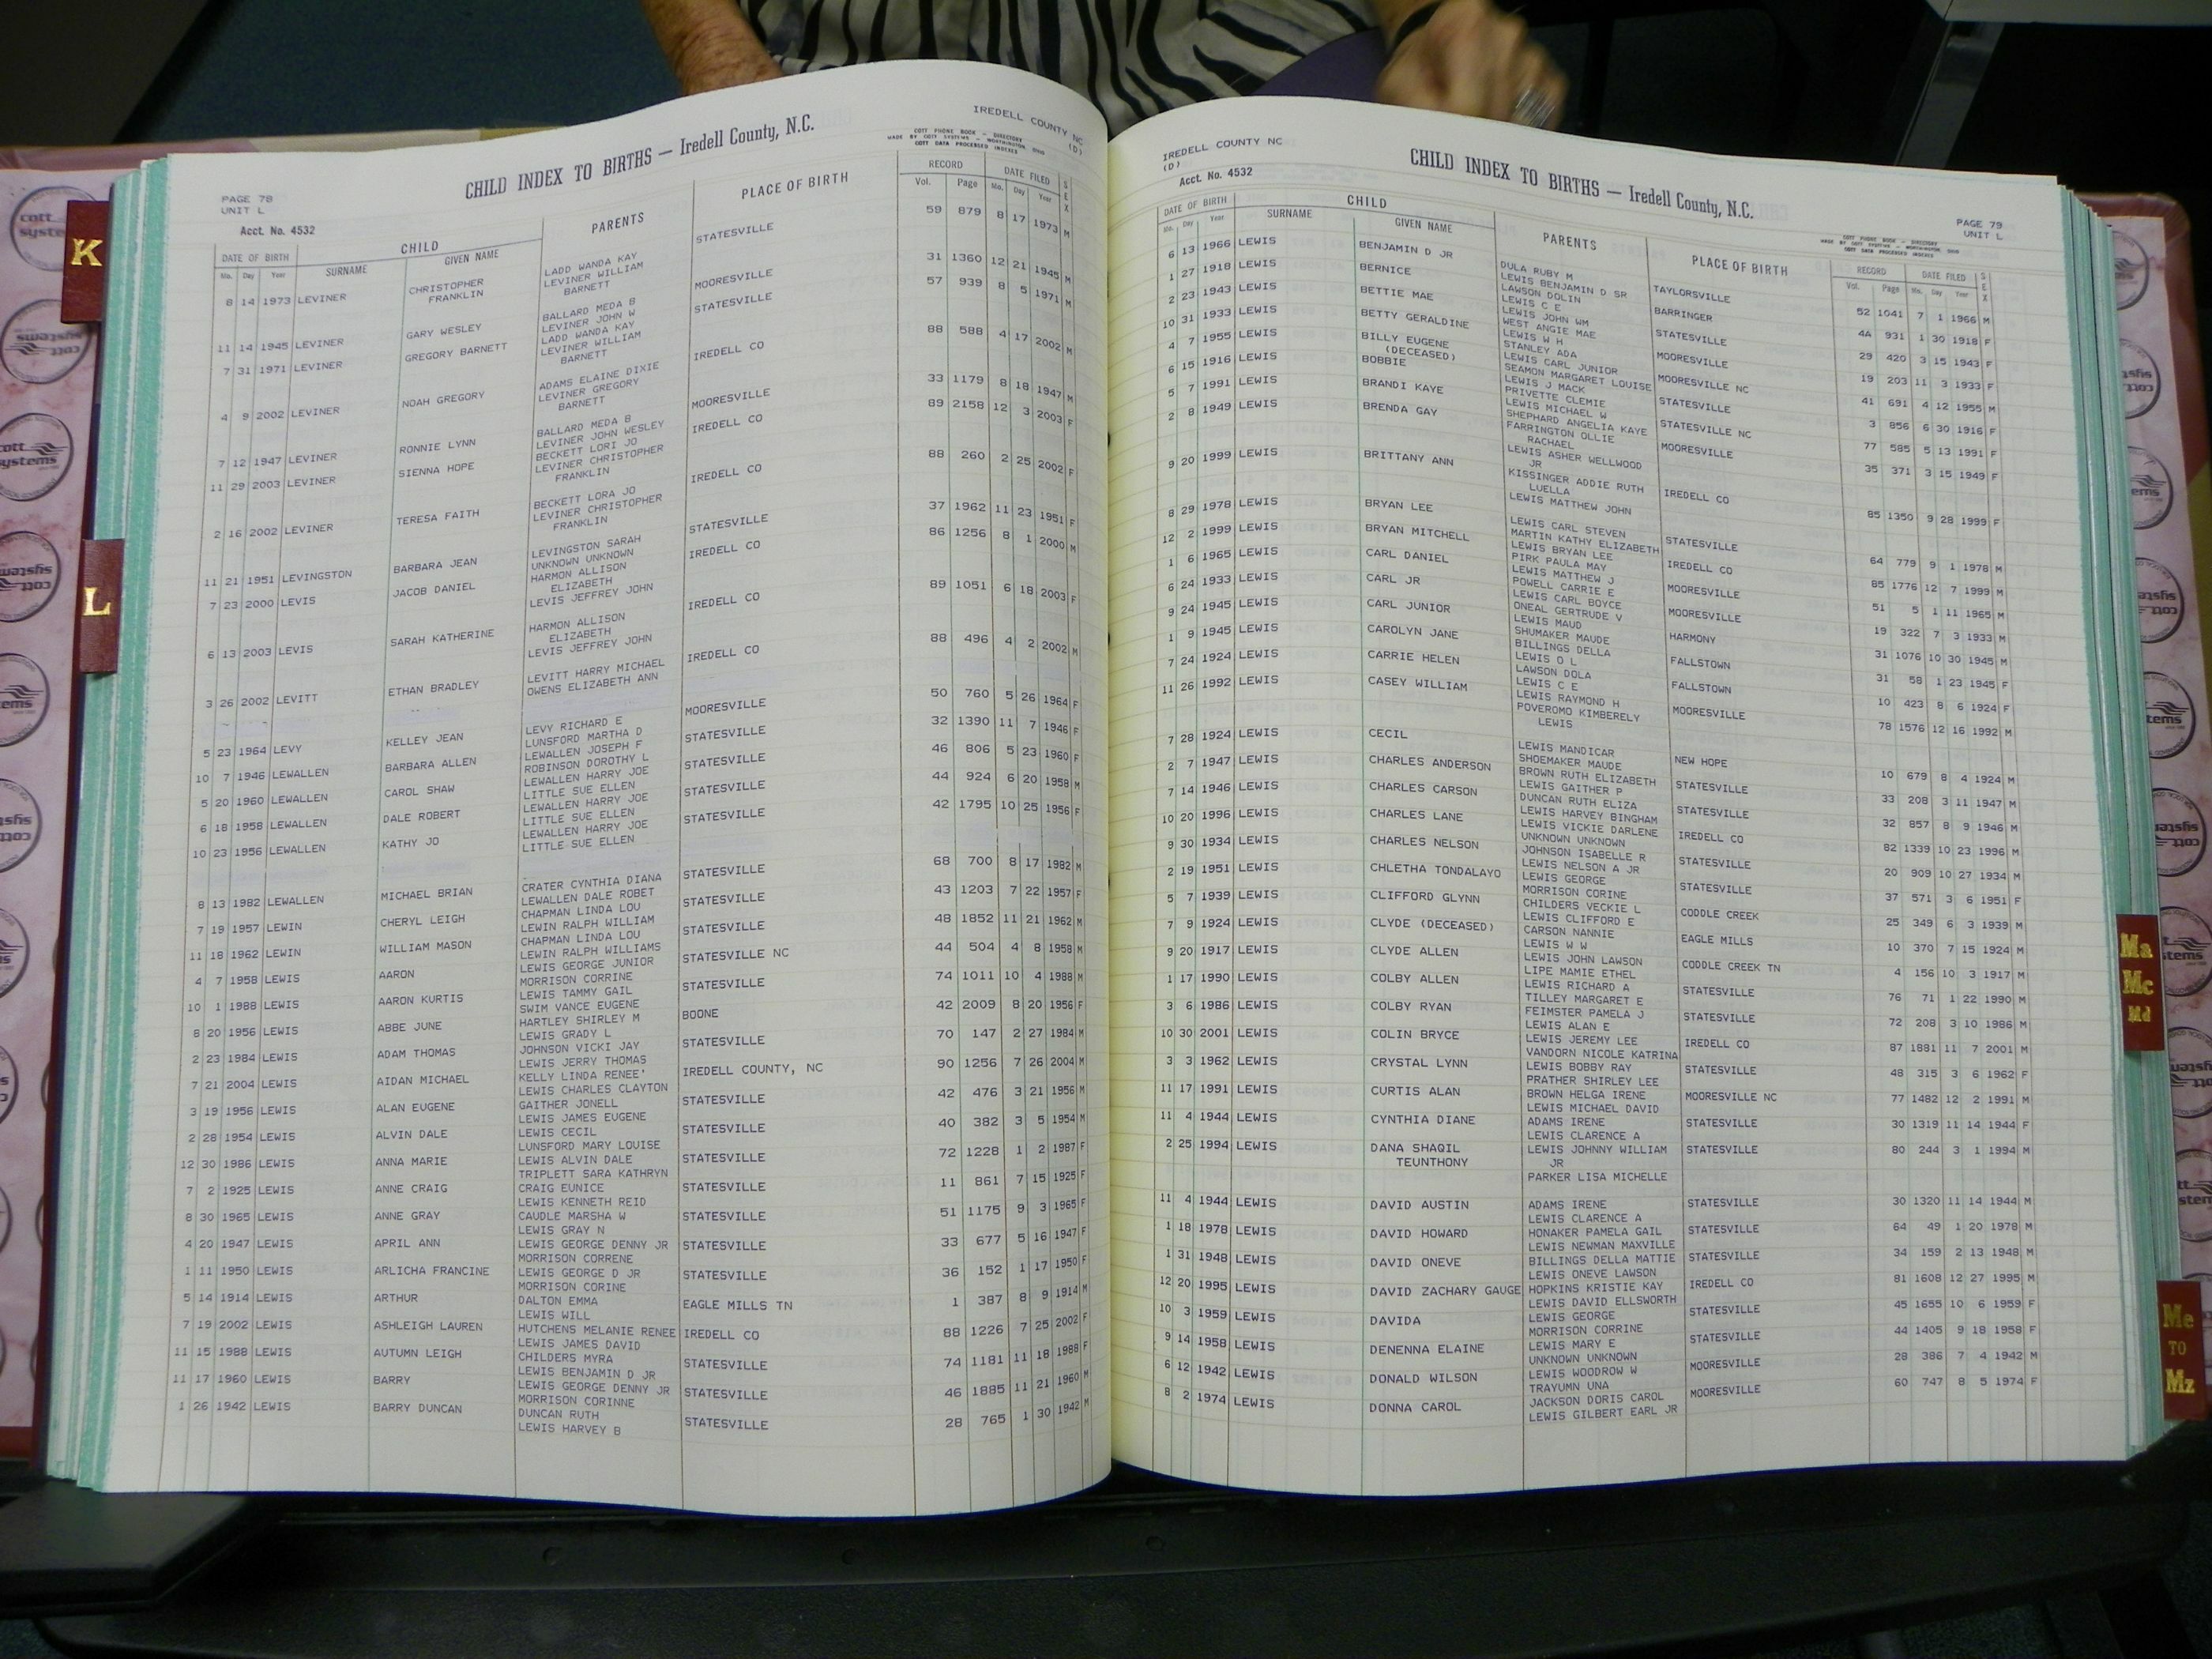 IREDELL COUNTY NC
(D)
CHILD INDEX TO BIRTHS — Iredell County, N.C.
COTT PHONE BOOK - DIRECTORY
MADE BY COTT SYSTEMS - WORTHINGTON, OHIO
COTT DATA PROCESSED INDEXES
PAGE 78
UNIT L
Acct. No. 4532
DATE OF BIRTH CHILD PARENTS PLACE OF BIRTH RECORD DATE FILED SEX
Mo. Day Year SURNAME GIVEN NAME Vol. Page Mo. Day Year
8 14 1973 LEVINER CHRISTOPHER LADD WANDA KAY STATESVILLE 59 879 8 17 1973 M
FRANKLIN LEVINER WILLIAM
BARNETT
11 14 1945 LEVINER GARY WESLEY BALLARD MEDA B MOORESVILLE 31 1360 12 21 1945 M
LEVINER JOHN W
7 31 1971 LEVINER GREGORY BARNETT LADD WANDA KAY STATESVILLE 57 939 8 5 1971 M
LEVINER WILLIAM
BARNETT
4 9 2002 LEVINER NOAH GREGORY ADAMS ELAINE DIXIE IREDELL CO 88 588 4 17 2002 M
LEVINER GREGORY
BARNETT
7 12 1947 LEVINER RONNIE LYNN BALLARD MEDA B MOORESVILLE 33 1179 8 18 1947 M
LEVINER JOHN WESLEY
11 29 2003 LEVINER SIENNA HOPE BECKETT LORI JO IREDELL CO 89 2158 12 3 2003 F
LEVINER CHRISTOPHER
FRANKLIN
2 16 2002 LEVINER TERESA FAITH BECKETT LORA JO IREDELL CO 88 260 2 25 2002 F
LEVINER CHRISTOPHER
FRANKLIN
11 21 1951 LEVINGSTON BARBARA JEAN LEVINGSTON SARAH STATESVILLE 37 1962 11 23 1951 F
UNKNOWN UNKNOWN
7 23 2000 LEVIS JACOB DANIEL HARMON ALLISON IREDELL CO 86 1256 8 1 2000 M
ELIZABETH
LEVIS JEFFREY JOHN
6 13 2003 LEVIS SARAH KATHERINE HARMON ALLISON IREDELL CO 89 1051 6 18 2003 F
ELIZABETH
LEVIS JEFFREY JOHN
3 26 2002 LEVITT ETHAN BRADLEY LEVITT HARRY MICHAEL IREDELL CO 88 496 4 2 2002 M
OWENS ELIZABETH ANN
5 23 1964 LEVY KELLEY JEAN LEVY RICHARD E MOORESVILLE 50 760 5 26 1964 F
LUNSFORD MARTHA D
10 7 1946 LEWALLEN BARBARA ALLEN LEWALLEN JOSEPH F STATESVILLE 32 1390 11 7 1946 F
ROBINSON DOROTHY L
5 20 1960 LEWALLEN CAROL SHAW LEWALLEN HARRY JOE STATESVILLE 46 806 5 23 1960 F
LITTLE SUE ELLEN
6 18 1958 LEWALLEN DALE ROBERT LEWALLEN HARRY JOE STATESVILLE 44 924 6 20 1958 M
LITTLE SUE ELLEN
10 23 1956 LEWALLEN KATHY JO LEWALLEN HARRY JOE STATESVILLE 42 1795 10 25 1956 F
LITTLE SUE ELLEN
8 13 1982 LEWALLEN MICHAEL BRIAN CRATER CYNTHIA DIANA STATESVILLE 68 700 8 17 1982 M
LEWALLEN DALE ROBET
7 19 1957 LEWIN CHERYL LEIGH CHAPMAN LINDA LOU STATESVILLE 43 1203 7 22 1957 F
LEWIN RALPH WILLIAM
11 18 1962 LEWIN WILLIAM MASON CHAPMAN LINDA LOU STATESVILLE 48 1852 11 21 1962 M
LEWIN RALPH WILLIAMS
4 7 1958 LEWIS AARON LEWIS GEORGE JUNIOR STATESVILLE NC 44 504 4 8 1958 M
MORRISON CORRINE
10 1 1988 LEWIS AARON KURTIS LEWIS TAMMY GAIL STATESVILLE 74 1011 10 4 1988 M
SWIM VANCE EUGENE
8 20 1956 LEWIS ABBE JUNE HARTLEY SHIRLEY M BOONE 42 2009 8 20 1956 F
LEWIS GRADY L
2 23 1984 LEWIS ADAM THOMAS JOHNSON VICKI JAY STATESVILLE 70 147 2 27 1984 M
LEWIS JERRY THOMAS
7 21 2004 LEWIS AIDAN MICHAEL KELLY LINDA RENEE' IREDELL COUNTY, NC 90 1256 7 26 2004 M
LEWIS CHARLES CLAYTON
3 19 1956 LEWIS ALAN EUGENE GAITHER JONELL STATESVILLE 42 476 3 21 1956 M
LEWIS JAMES EUGENE
2 28 1954 LEWIS ALVIN DALE LEWIS CECIL STATESVILLE 40 382 3 5 1954 M
LUNSFORD MARY LOUISE
12 30 1986 LEWIS ANNA MARIE LEWIS ALVIN DALE STATESVILLE 72 1228 1 2 1987 F
TRIPLETT SARA KATHRYN
7 2 1925 LEWIS ANNE CRAIG CRAIG EUNICE STATESVILLE 11 861 7 15 1925 F
LEWIS KENNETH REID
8 30 1965 LEWIS ANNE GRAY CAUDLE MARSHA W STATESVILLE 51 1175 9 3 1965 F
LEWIS GRAY N
4 20 1947 LEWIS APRIL ANN LEWIS GEORGE DENNY JR STATESVILLE 33 677 5 16 1947 F
MORRISON CORRENE
1 11 1950 LEWIS ARLICHA FRANCINE LEWIS GEORGE D JR STATESVILLE 36 152 1 17 1950 F
MORRISON CORINE
5 14 1914 LEWIS ARTHUR DALTON EMMA EAGLE MILLS TN 1 387 8 9 1914 M
LEWIS WILL
7 19 2002 LEWIS ASHLEIGH LAUREN HUTCHENS MELANIE RENEE IREDELL CO 88 1226 7 25 2002 F
LEWIS JAMES DAVID
11 15 1988 LEWIS AUTUMN LEIGH CHILDERS MYRA STATESVILLE 74 1181 11 18 1988 F
LEWIS BENJAMIN D JR
11 17 1960 LEWIS BARRY LEWIS GEORGE DENNY JR STATESVILLE 46 1885 11 21 1960 M
MORRISON CORINNE
1 26 1942 LEWIS BARRY DUNCAN DUNCAN RUTH STATESVILLE 28 765 1 30 1942 M
LEWIS HARVEY B
IREDELL COUNTY NC
(D)
Acct. No. 4532
CHILD INDEX TO BIRTHS — Iredell County, N.C.
PAGE 79
UNIT L
COTT PHONE BOOK - DIRECTORY
MADE BY COTT SYSTEMS - WORTHINGTON, OHIO
COTT DATA PROCESSED INDEXES
DATE OF BIRTH CHILD PARENTS PLACE OF BIRTH RECORD DATE FILED SEX
Mo. Day Year SURNAME GIVEN NAME Vol. Page Mo. Day Year
6 13 1966 LEWIS BENJAMIN D JR DULA RUBY M TAYLORSVILLE 52 1041 7 1 1966 M
LEWIS BENJAMIN D SR
1 27 1918 LEWIS BERNICE LAWSON DOLIN BARRINGER 4A 931 1 30 1918 F
LEWIS C E
2 23 1943 LEWIS BETTIE MAE LEWIS JOHN WM STATESVILLE 29 420 3 15 1943 F
WEST ANGIE MAE
10 31 1933 LEWIS BETTY GERALDINE LEWIS W H MOORESVILLE 19 203 11 3 1933 F
STANLEY ADA
4 7 1955 LEWIS BILLY EUGENE LEWIS CARL JUNIOR MOORESVILLE NC 41 691 4 12 1955 M
(DECEASED) SEAMON MARGARET LOUISE
6 15 1916 LEWIS BOBBIE LEWIS J MACK STATESVILLE 3 856 6 30 1916 F
PRIVETTE CLEMIE
5 7 1991 LEWIS BRANDI KAYE LEWIS MICHAEL W STATESVILLE NC 77 585 5 13 1991 F
SHEPHARD ANGELIA KAYE
2 8 1949 LEWIS BRENDA GAY FARRINGTON OLLIE MOORESVILLE 35 371 3 15 1949 F
RACHAEL
LEWIS ASHER WELLWOOD
JR
9 20 1999 LEWIS BRITTANY ANN KISSINGER ADDIE RUTH IREDELL CO 85 1350 9 28 1999 F
LUELLA
LEWIS MATTHEW JOHN
8 29 1978 LEWIS BRYAN LEE LEWIS CARL STEVEN STATESVILLE 64 779 9 1 1978 M
MARTIN KATHY ELIZABETH
12 2 1999 LEWIS BRYAN MITCHELL LEWIS BRYAN LEE IREDELL CO 85 1776 12 7 1999 M
PIRK PAULA MAY
1 6 1965 LEWIS CARL DANIEL LEWIS MATTHEW J MOORESVILLE 51 5 1 11 1965 M
POWELL CARRIE E
6 24 1933 LEWIS CARL JR LEWIS CARL BOYCE MOORESVILLE 19 322 7 3 1933 M
ONEAL GERTRUDE V
9 24 1945 LEWIS CARL JUNIOR LEWIS MAUD HARMONY 31 1076 10 30 1945 M
SHUMAKER MAUDE
1 9 1945 LEWIS CAROLYN JANE BILLINGS DELLA FALLSTOWN 31 58 1 23 1945 F
LEWIS O L
7 24 1924 LEWIS CARRIE HELEN LAWSON DOLA FALLSTOWN 10 423 8 6 1924 F
LEWIS C E
11 26 1992 LEWIS CASEY WILLIAM LEWIS RAYMOND H MOORESVILLE 78 1576 12 16 1992 M
POVEROMO KIMBERELY
LEWIS
7 28 1924 LEWIS CECIL LEWIS MANDICAR NEW HOPE 10 679 8 4 1924 M
SHOEMAKER MAUDE
2 7 1947 LEWIS CHARLES ANDERSON BROWN RUTH ELIZABETH STATESVILLE 33 208 3 11 1947 M
LEWIS GAITHER P
7 14 1946 LEWIS CHARLES CARSON DUNCAN RUTH ELIZA STATESVILLE 32 857 8 9 1946 M
LEWIS HARVEY BINGHAM
10 20 1996 LEWIS CHARLES LANE LEWIS VICKIE DARLENE IREDELL CO 82 1339 10 23 1996 M
UNKNOWN UNKNOWN
9 30 1934 LEWIS CHARLES NELSON JOHNSON ISABELLE R STATESVILLE 20 909 10 27 1934 M
LEWIS NELSON A JR
2 19 1951 LEWIS CHLETHA TONDALAYO LEWIS GEORGE STATESVILLE 37 571 3 6 1951 F
MORRISON CORINE
5 7 1939 LEWIS CLIFFORD GLYNN CHILDERS VECKIE L CODDLE CREEK 25 349 6 3 1939 M
LEWIS CLIFFORD E
7 9 1924 LEWIS CLYDE (DECEASED) CARSON NANNIE EAGLE MILLS 10 370 7 15 1924 M
LEWIS W W
9 20 1917 LEWIS CLYDE ALLEN LEWIS JOHN LAWSON CODDLE CREEK TN 4 156 10 3 1917 M
LIPE MAMIE ETHEL
1 17 1990 LEWIS COLBY ALLEN LEWIS RICHARD A STATESVILLE 76 71 1 22 1990 M
TILLEY MARGARET E
3 6 1986 LEWIS COLBY RYAN FEIMSTER PAMELA J STATESVILLE 72 208 3 10 1986 M
LEWIS ALAN E
10 30 2001 LEWIS COLIN BRYCE LEWIS JEREMY LEE IREDELL CO 87 1881 11 7 2001 M
VANDORN NICOLE KATRINA
3 3 1962 LEWIS CRYSTAL LYNN LEWIS BOBBY RAY STATESVILLE 48 315 3 6 1962 F
PRATHER SHIRLEY LEE
11 17 1991 LEWIS CURTIS ALAN BROWN HELGA IRENE MOORESVILLE NC 77 1482 12 2 1991 M
LEWIS MICHAEL DAVID
11 4 1944 LEWIS CYNTHIA DIANE ADAMS IRENE STATESVILLE 30 1319 11 14 1944 F
LEWIS CLARENCE A
2 25 1994 LEWIS DANA SHAQIL LEWIS JOHNNY WILLIAM STATESVILLE 80 244 3 1 1994 M
TEUNTHONY JR
PARKER LISA MICHELLE
11 4 1944 LEWIS DAVID AUSTIN ADAMS IRENE STATESVILLE 30 1320 11 14 1944 M
LEWIS CLARENCE A
1 18 1978 LEWIS DAVID HOWARD HONAKER PAMELA GAIL STATESVILLE 64 49 1 20 1978 M
LEWIS NEWMAN MAXVILLE
1 31 1948 LEWIS DAVID ONEVE BILLINGS DELLA MATTIE STATESVILLE 34 159 2 13 1948 M
LEWIS ONEVE LAWSON
12 20 1995 LEWIS DAVID ZACHARY GAUGE HOPKINS KRISTIE KAY IREDELL CO 81 1608 12 27 1995 M
LEWIS DAVID ELLSWORTH
10 3 1959 LEWIS DAVIDA LEWIS GEORGE STATESVILLE 45 1655 10 6 1959 F
MORRISON CORRINE
9 14 1958 LEWIS DENENNA ELAINE LEWIS MARY E STATESVILLE 44 1405 9 18 1958 F
UNKNOWN UNKNOWN
6 12 1942 LEWIS DONALD WILSON LEWIS WOODROW W MOORESVILLE 28 386 7 4 1942 M
TRAYUMN UNA
8 2 1974 LEWIS DONNA CAROL JACKSON DORIS CAROL MOORESVILLE 60 747 8 5 1974 F
LEWIS GILBERT EARL JR
K
L
Ma
Mc
Md
Me
TO
Mz
cott
systems